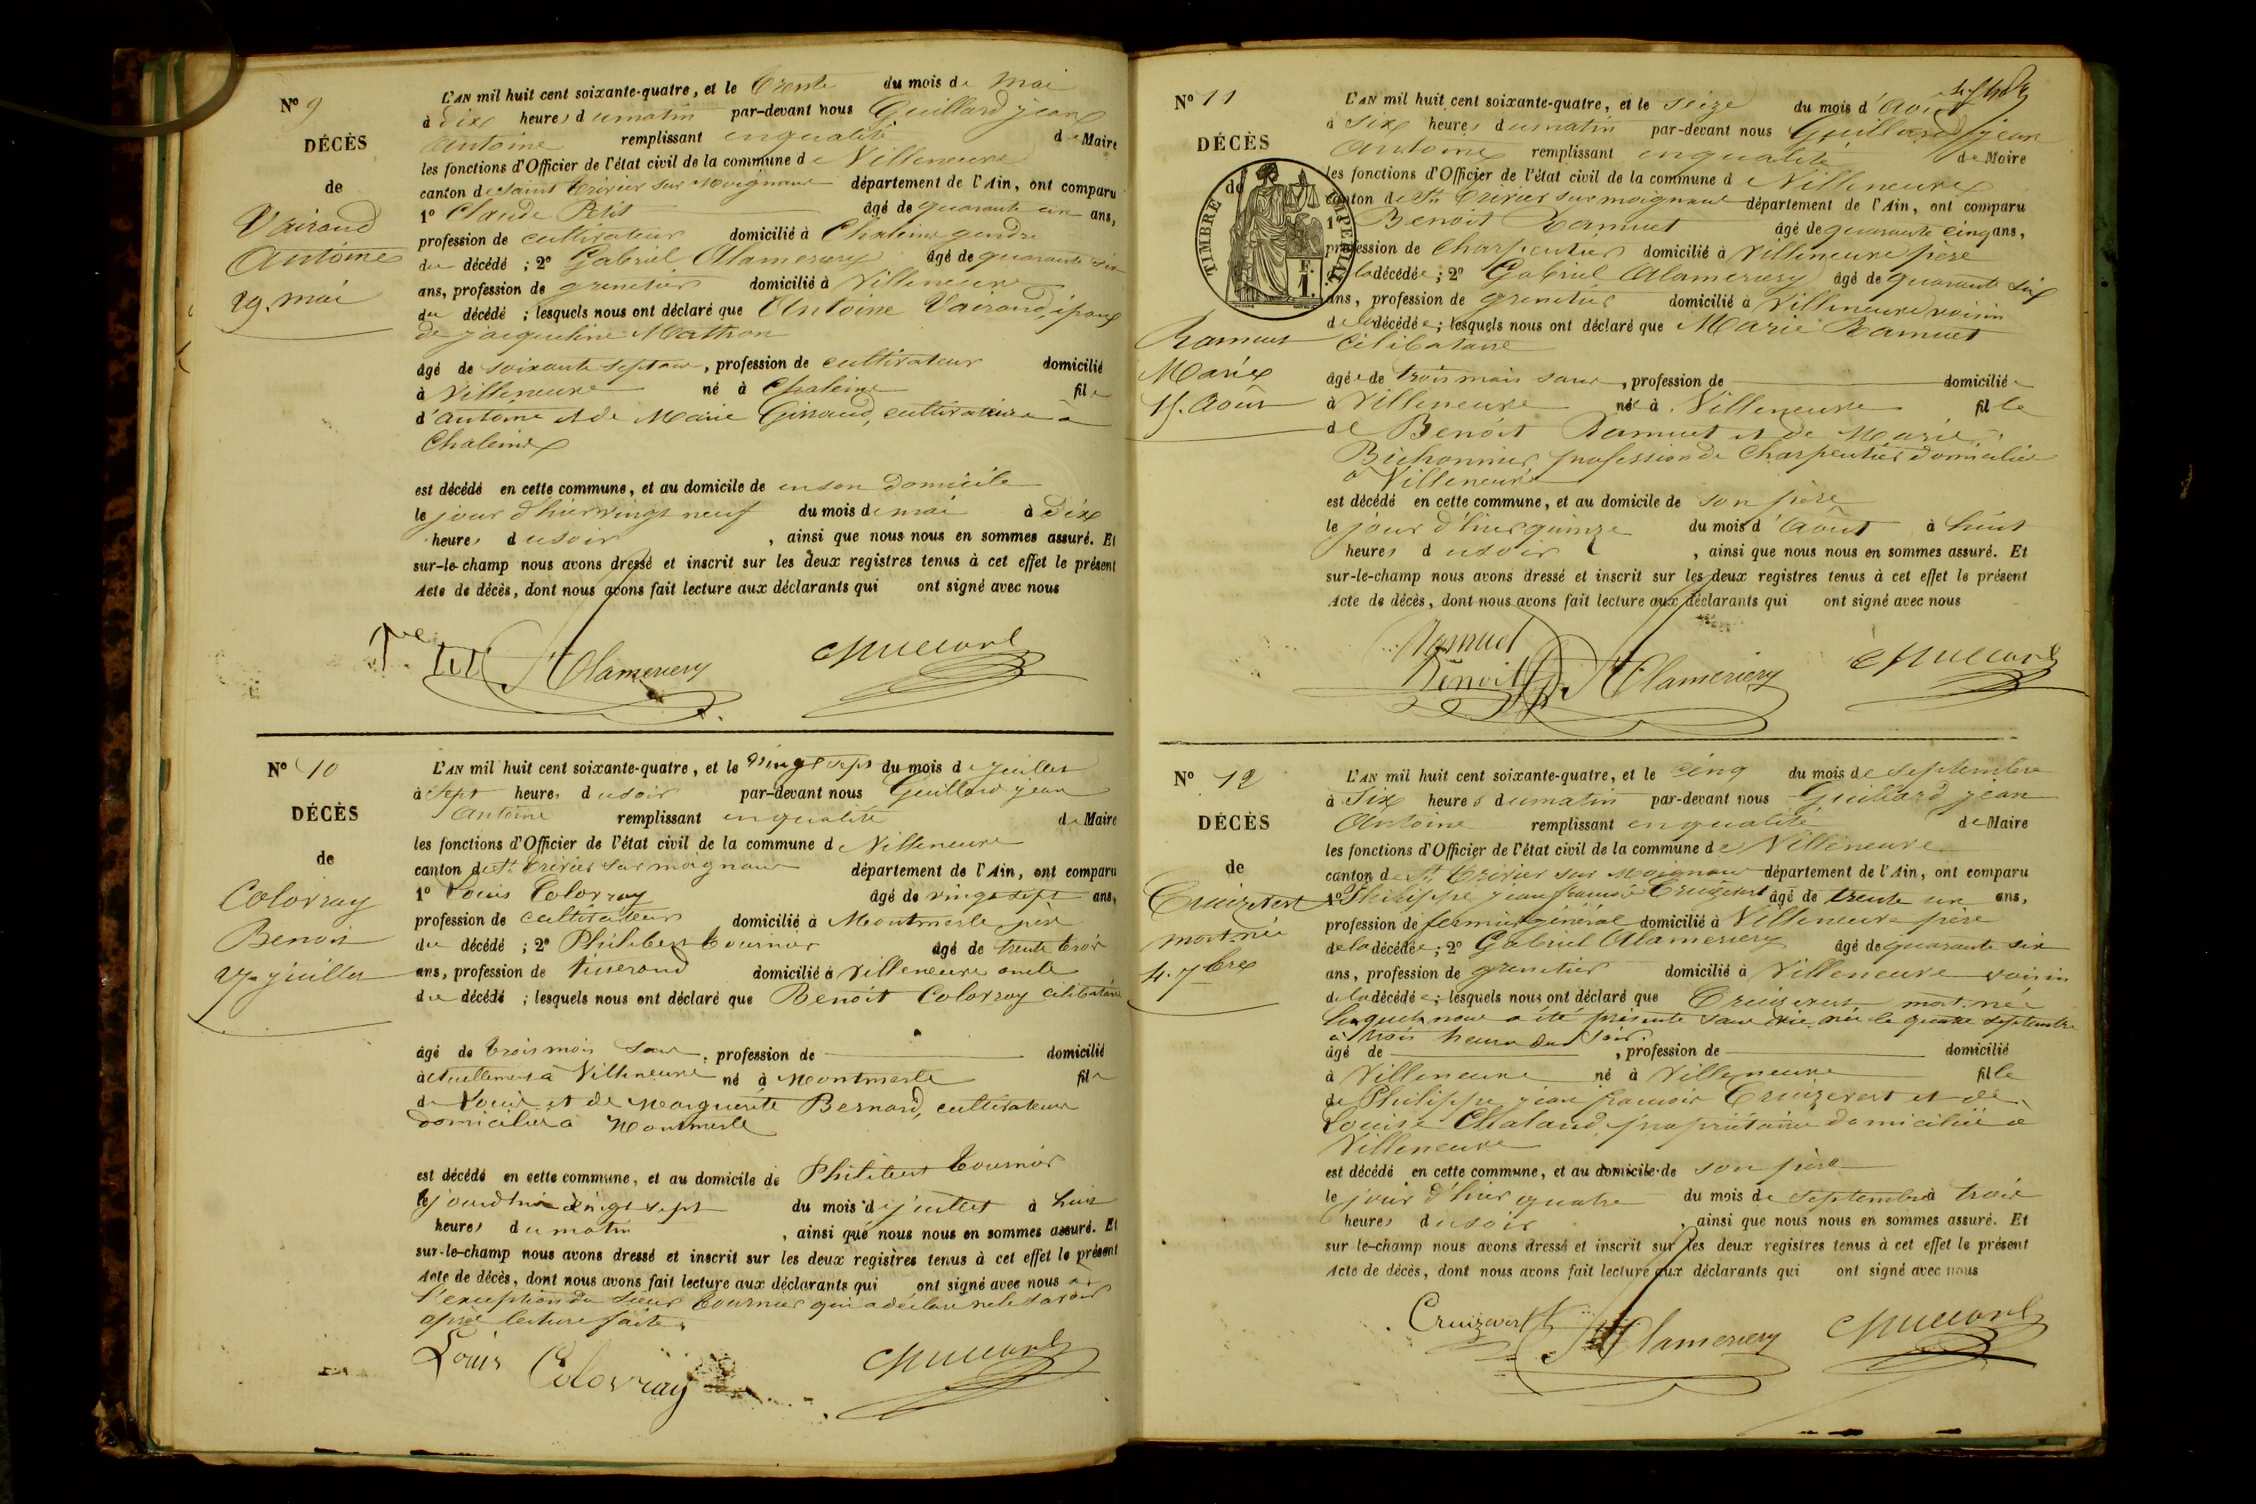 N° 9
DÉCÈS
de
Vairand
Antoine
29. mai
L'AN mil huit cent soixante-quatre, et le trente du mois de mai
à dix heures du matin par-devant nous Guillard jean
antoine remplissant en qualité de Maire
les fonctions d'Officier de l'état civil de la commune de Villeneuve
canton de Saint Trivier sur Moignans département de l'Ain, ont comparu
1° Claude Petit âgé de quarante cinq ans,
profession de cultivateur domicilié à Chaleins gendre
du décédé ; 2° Gabriel Alamercery âgé de quarante six
ans, profession de grenetier domicilié à Villeneuve
du décédé ; lesquels nous ont déclaré que Antoine Vairand, époux
de jacqueline Mathon
âgé de soixante sept ans, profession de cultivateur domicilié
à Villeneuve né à Chaleins fils
d'antoine et de Marie Giraud, cultivateurs à
Chaleins
est décédé en cette commune, et au domicile de en son domicile
le jour d'hier vingt neuf du mois de mai à dix
heures du soir, ainsi que nous nous en sommes assuré. Et
sur-le-champ nous avons dressé et inscrit sur les deux registres tenus à cet effet le présent
Acte de décès, dont nous avons fait lecture aux déclarants qui ont signé avec nous
Petit Alamercery Guillard
N° 10
DÉCÈS
de
Colovray
Benoit
27 juillet
L'AN mil huit cent soixante-quatre, et le vingt sept du mois de juillet
à sept heures du soir par-devant nous Guillard jean
Antoine remplissant en qualité de Maire
les fonctions d'Officier de l'état civil de la commune de Villeneuve
canton de St Trivier sur moignans département de l'Ain, ont comparu
1° Louis Colovray âgé de vingt sept ans,
profession de cultivateur domicilié à Montmerle père
du décédé ; 2° Philibert Tournier âgé de trente trois
ans, profession de tisserand domicilié à Villeneuve oncle
du décédé ; lesquels nous ont déclaré que Benoît Colovray célibataire
âgé de trois mois, profession de domicilié
actuellement à Villeneuve né à Montmerle fils
de Louis et de Marguerite Bernard, cultivateurs
domiciliés à Montmerle
est décédé en cette commune, et au domicile de Philibert Tournier
le jourd'hui vingt sept du mois de juillet à huit
heures du matin, ainsi que nous nous en sommes assuré. Et
sur-le-champ nous avons dressé et inscrit sur les deux registres tenus à cet effet le présent
Acte de décès, dont nous avons fait lecture aux déclarants qui ont signé avec nous à
l'exception du sieur Tournier qui a déclaré ne le savoir
après lecture faite.
Louis Colovray Guillard
N° 11
DÉCÈS
de
TIMBRE IMPERIAL
Ramuet
Marie
15. Août
L'AN mil huit cent soixante-quatre, et le seize du mois d'Août
à six heures du matin par-devant nous Guillard jean
Antoine remplissant en qualité de Maire
les fonctions d'Officier de l'état civil de la commune de Villeneuve
canton de St Trivier sur moignans département de l'Ain, ont comparu
1° Benoit Ramuet âgé de quarante cinq ans,
profession de Charpentier domicilié à Villeneuve père
de la décédée ; 2° Gabriel Alamercery âgé de quarante six
ans, profession de grenetier domicilié à Villeneuve voisin
de la décédée ; lesquels nous ont déclaré que Marie Ramuet
Célibataire
âgée de trois mois, profession de domiciliée
à Villeneuve née à Villeneuve fille
de Benoit Ramuet et de Marie
Bichonnier profession de Charpentier domiciliés
à Villeneuve
est décédé en cette commune, et au domicile de son père
le jour d'hier quinze du mois d'Août à huit
heures du soir, ainsi que nous nous en sommes assuré. Et
sur-le-champ nous avons dressé et inscrit sur les deux registres tenus à cet effet le présent
Acte de décès, dont nous avons fait lecture aux déclarants qui ont signé avec nous
Ramuet
Benoit Alamercery Guillard
N° 12
DÉCÈS
de
Cruizevert
mort-née
4. 7bre
L'AN mil huit cent soixante-quatre, et le cinq du mois de septembre
à six heures du matin par-devant nous Guillard jean
Antoine remplissant en qualité de Maire
les fonctions d'Officier de l'état civil de la commune de Villeneuve
canton de St Trivier sur Moignans département de l'Ain, ont comparu
1° Philippe jean françois Cruizevert âgé de trente un ans,
profession de fermier général domicilié à Villeneuve père
de la décédée ; 2° Gabriel Alamercery âgé de quarante six
ans, profession de grenetier domicilié à Villeneuve voisin
de la décédée ; lesquels nous ont déclaré que Cruizevert mort-née
nous a été présenté sans vie née le quatre septembre
à trois heures du soir.
âgé de , profession de domicilié
à Villeneuve né à Villeneuve fille
de Philippe jean françois Cruizevert et de
Louise Chaland propriétaires domiciliés à
Villeneuve
est décédé en cette commune, et au domicile de son père
le jour d'hier quatre du mois de septembre à trois
heures du soir, ainsi que nous nous en sommes assuré. Et
sur le-champ nous avons dressé et inscrit sur les deux registres tenus à cet effet le présent
Acte de décès, dont nous avons fait lecture aux déclarants qui ont signé avec nous
Cruizevert Alamercery Guillard